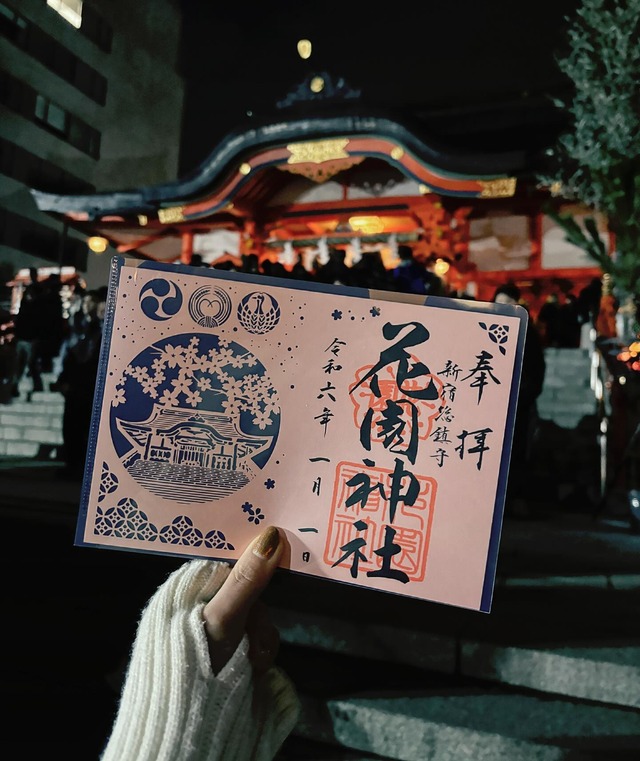 奉拝
新宿総鎮守
花園神社
令和六年 一月 一日